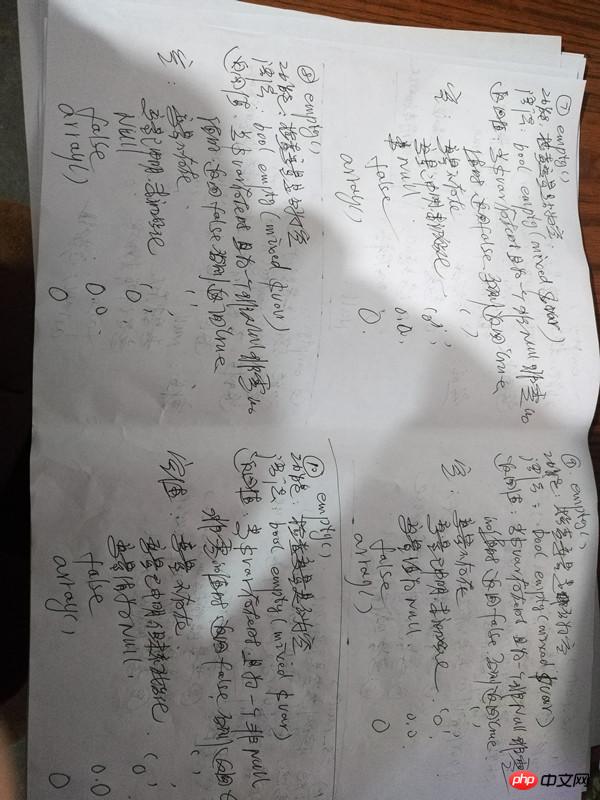 ⑦ empty()
功能: 检查变量是否为空
语法: bool empty(mixed $var)
返回值: 当$var存在且为一个非Null非零的
值时 返回false 否则返回true
空: 变量不存在 ' '
变量已声明未初始化 '0',
Null 0.0
false 0
array()
⑥ empty()
功能: 检查变量是否为空
语法: bool empty(mixed $var)
返回值: 当$var存在且为一个非Null非零
的值时 返回false 否则返回true
空: 变量不存在 ' '
变量已声明未初始化 '0'
变量值为Null 0.0
false 0
array()
⑧ empty()
功能: 检查变量是否为空
语法: bool empty(mixed $var)
返回值: 当$var存在且为一个非Null非零的
值时 返回false 否则返回true
空: 变量不存在 ' '
变量已声明未初始化 '0',
Null 0.0
false 0
array()
empty()
功能: 检查变量是否为空
语法: bool empty(mixed $var)
返回值 当$var存在且为一个非Null
非零的值时 返回false 否则返回t
空值: 变量不存在 ' '
变量已声明但未初始化 '0'
变量值为Null 0.0
false 0
array()
php 中文网